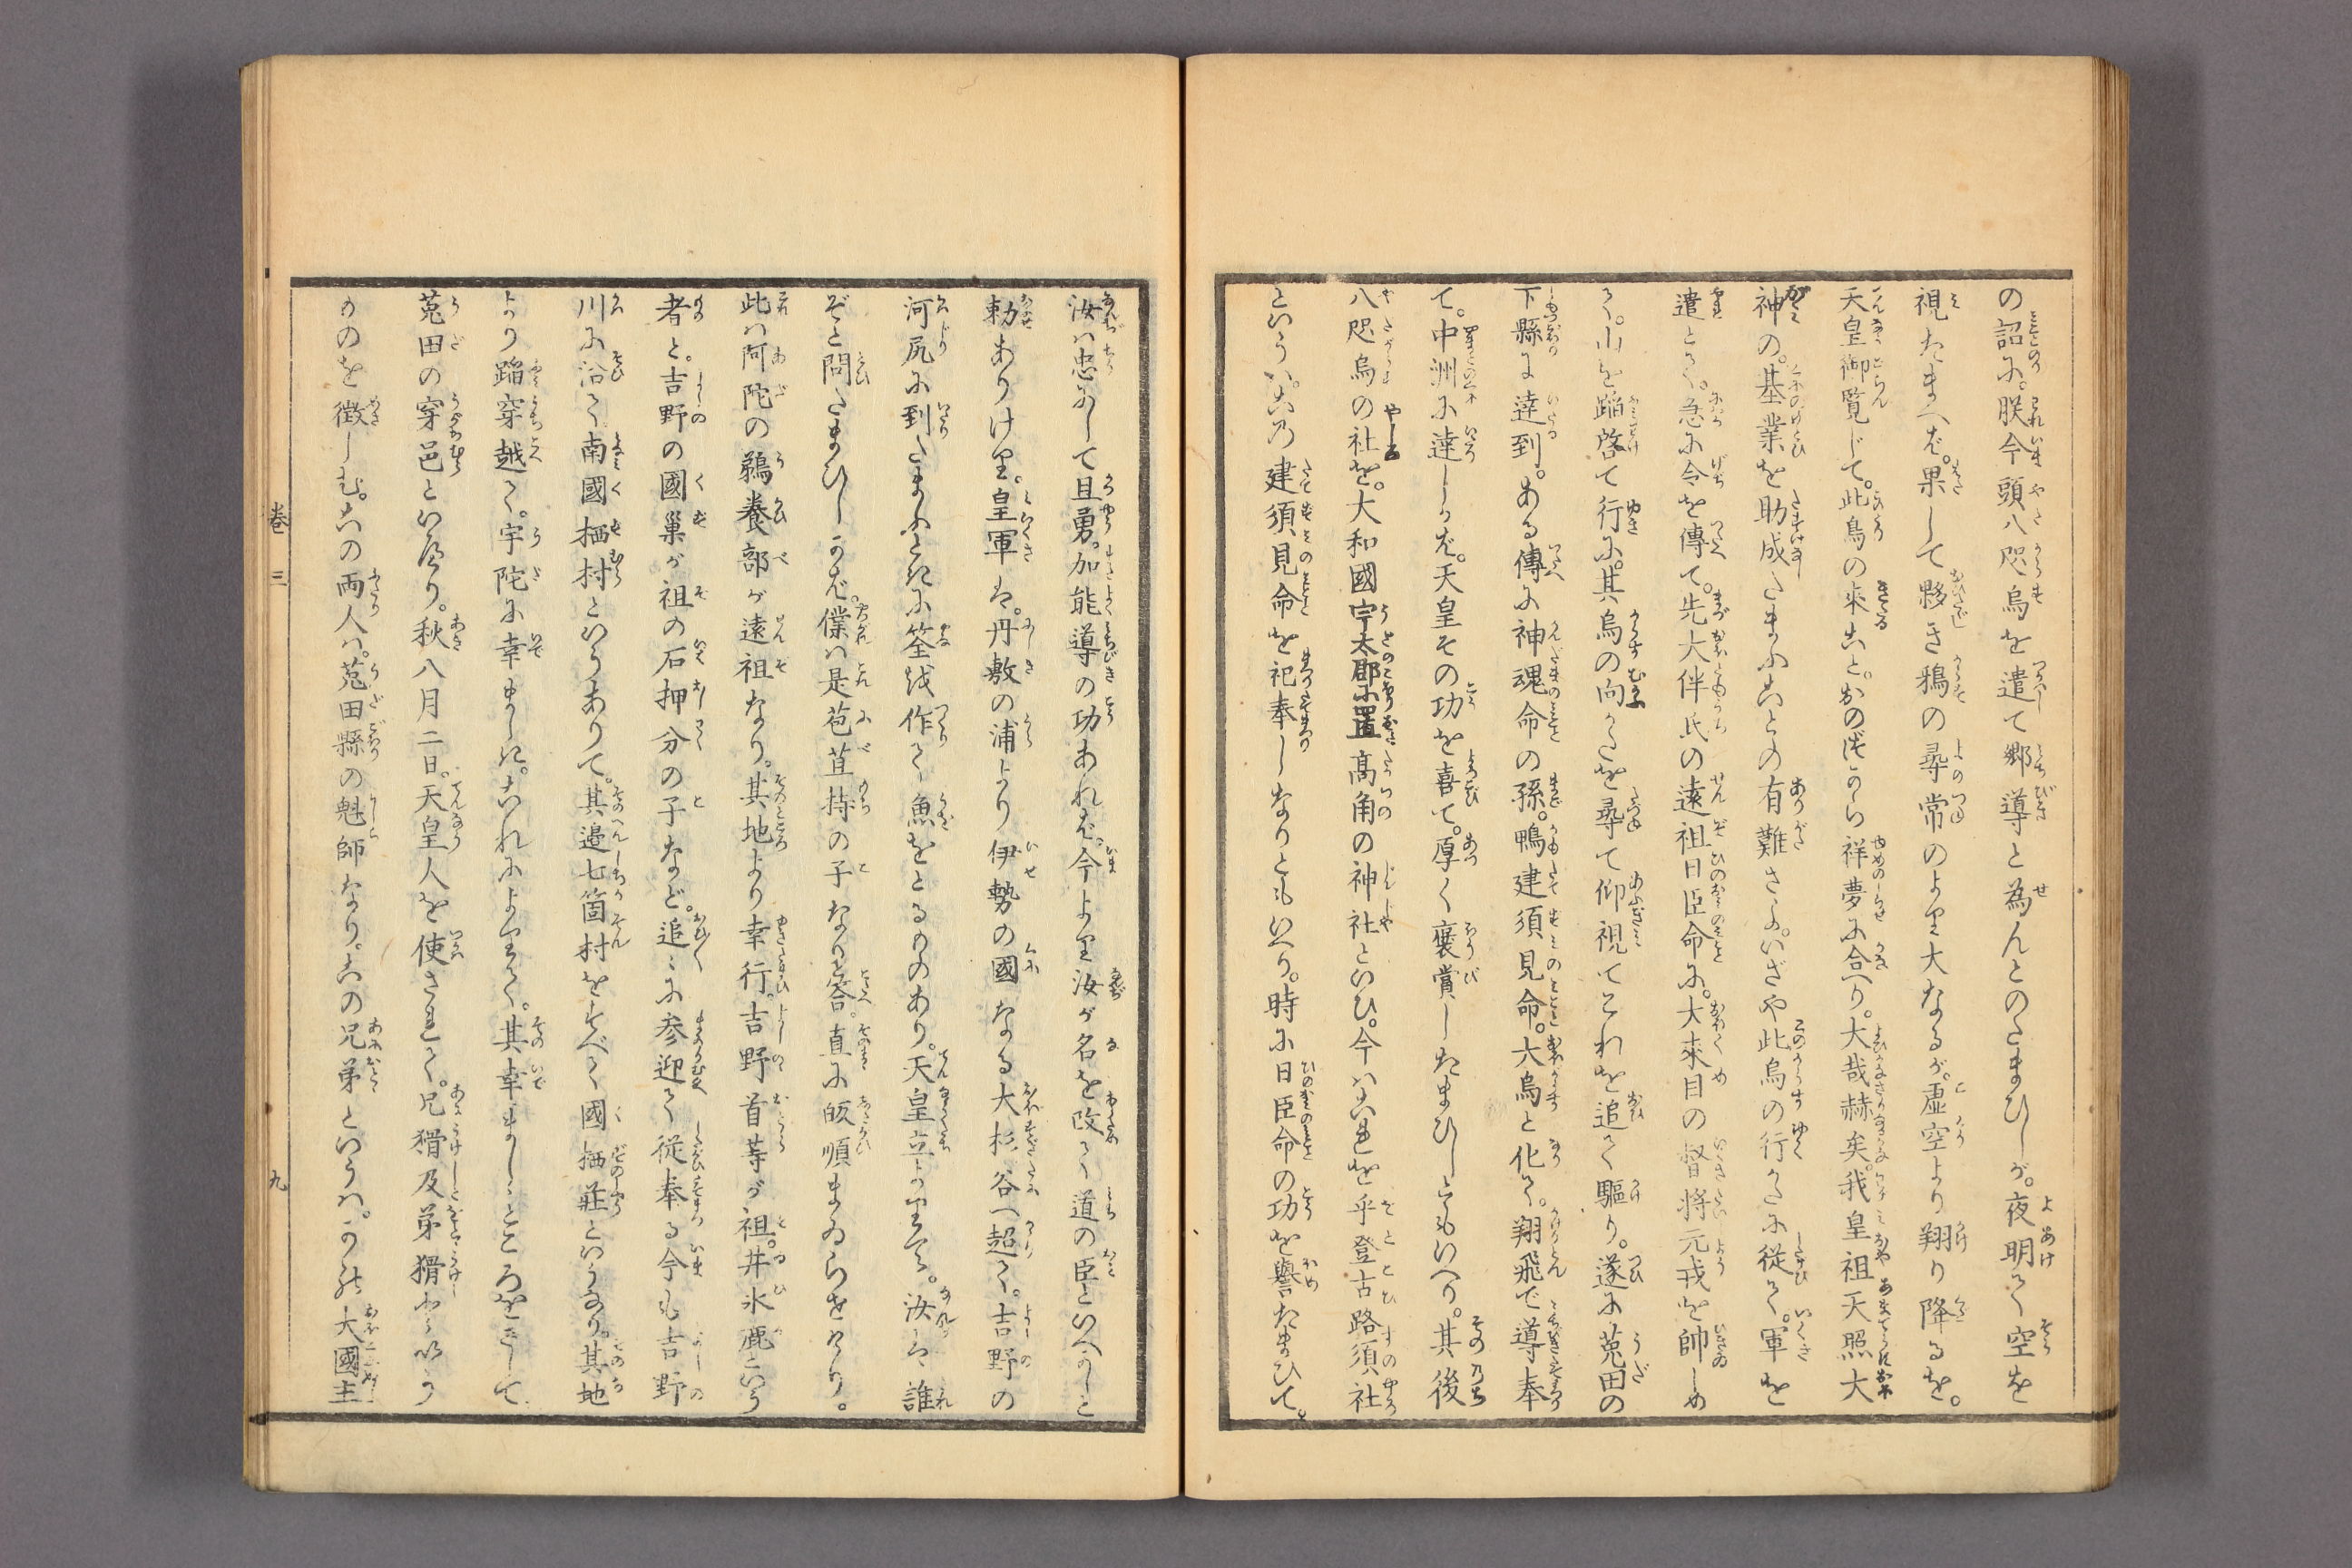 の詔に。朕今頭八咫烏を遣て郷導と為んとのたまひしが。夜明て空を
視たまへば。果して夥き鴉の尋常のより大なるが。虚空より翔り降るを。
天皇御覧じて。此烏の來こと。おのづから祥夢に合へり。大哉赫矣。我皇祖天照大
神の。基業を助成たまふことの有難さよ。いざや此烏の行かたに従て。軍を
遣とて。急に令を傳て。先大伴氏の遠祖日臣命に。大來目の督将元戎を帥しめ
て。山を蹈啓て行に。其烏の向かたを尋て仰視てこれを追て驅り。遂に菟田の
下縣に達到。ある傳に神魂命の孫。鴨建須見命。大烏と化て。翔飛で導奉
て。中洲に達しかば。天皇その功を喜て。厚く褒賞したまひしともいへり。其後
八咫烏の社を。大和國宇太郡に置高角の神社といひ。今は是を乎登古路須社
といふは。この建須見命を祀奉しなりともいへり。時に日臣命の功を譽たまひて。
汝は忠ありて且勇。加能導の功あれば。今より汝が名を改て道の臣といへかしと
勅ありけり。皇軍は。丹敷の浦より伊勢の國なる大杉谷へ超て。吉野の
河尻に到たまふときに筌を作て魚をとるものあり。天皇立よりて。汝は誰
ぞと問たまひしかば。僕は是苞苴持の子なりと答。直に皈順まゐらせけり。
此は阿陀の鵜養部が遠祖なり。其地より幸行。吉野首等が祖。井氷鹿といふ
者と。吉野の國巣が祖の石押分の子など。追々に参迎て従奉る今も吉野
川に沿て南國栖村といふありて。其邊七箇村をすべて國栖莊といふなり。其地
より蹈穿越て。宇陀に幸ましき。これによりて。其幸まししところをさして
菟田の穿邑といふなり。秋八月二日。天皇人を使されて。兄猾及弟猾といふ
ものを徴しむ。この両人は。菟田縣の魁師なり。この兄弟といふは。かの大國主
巻三
九